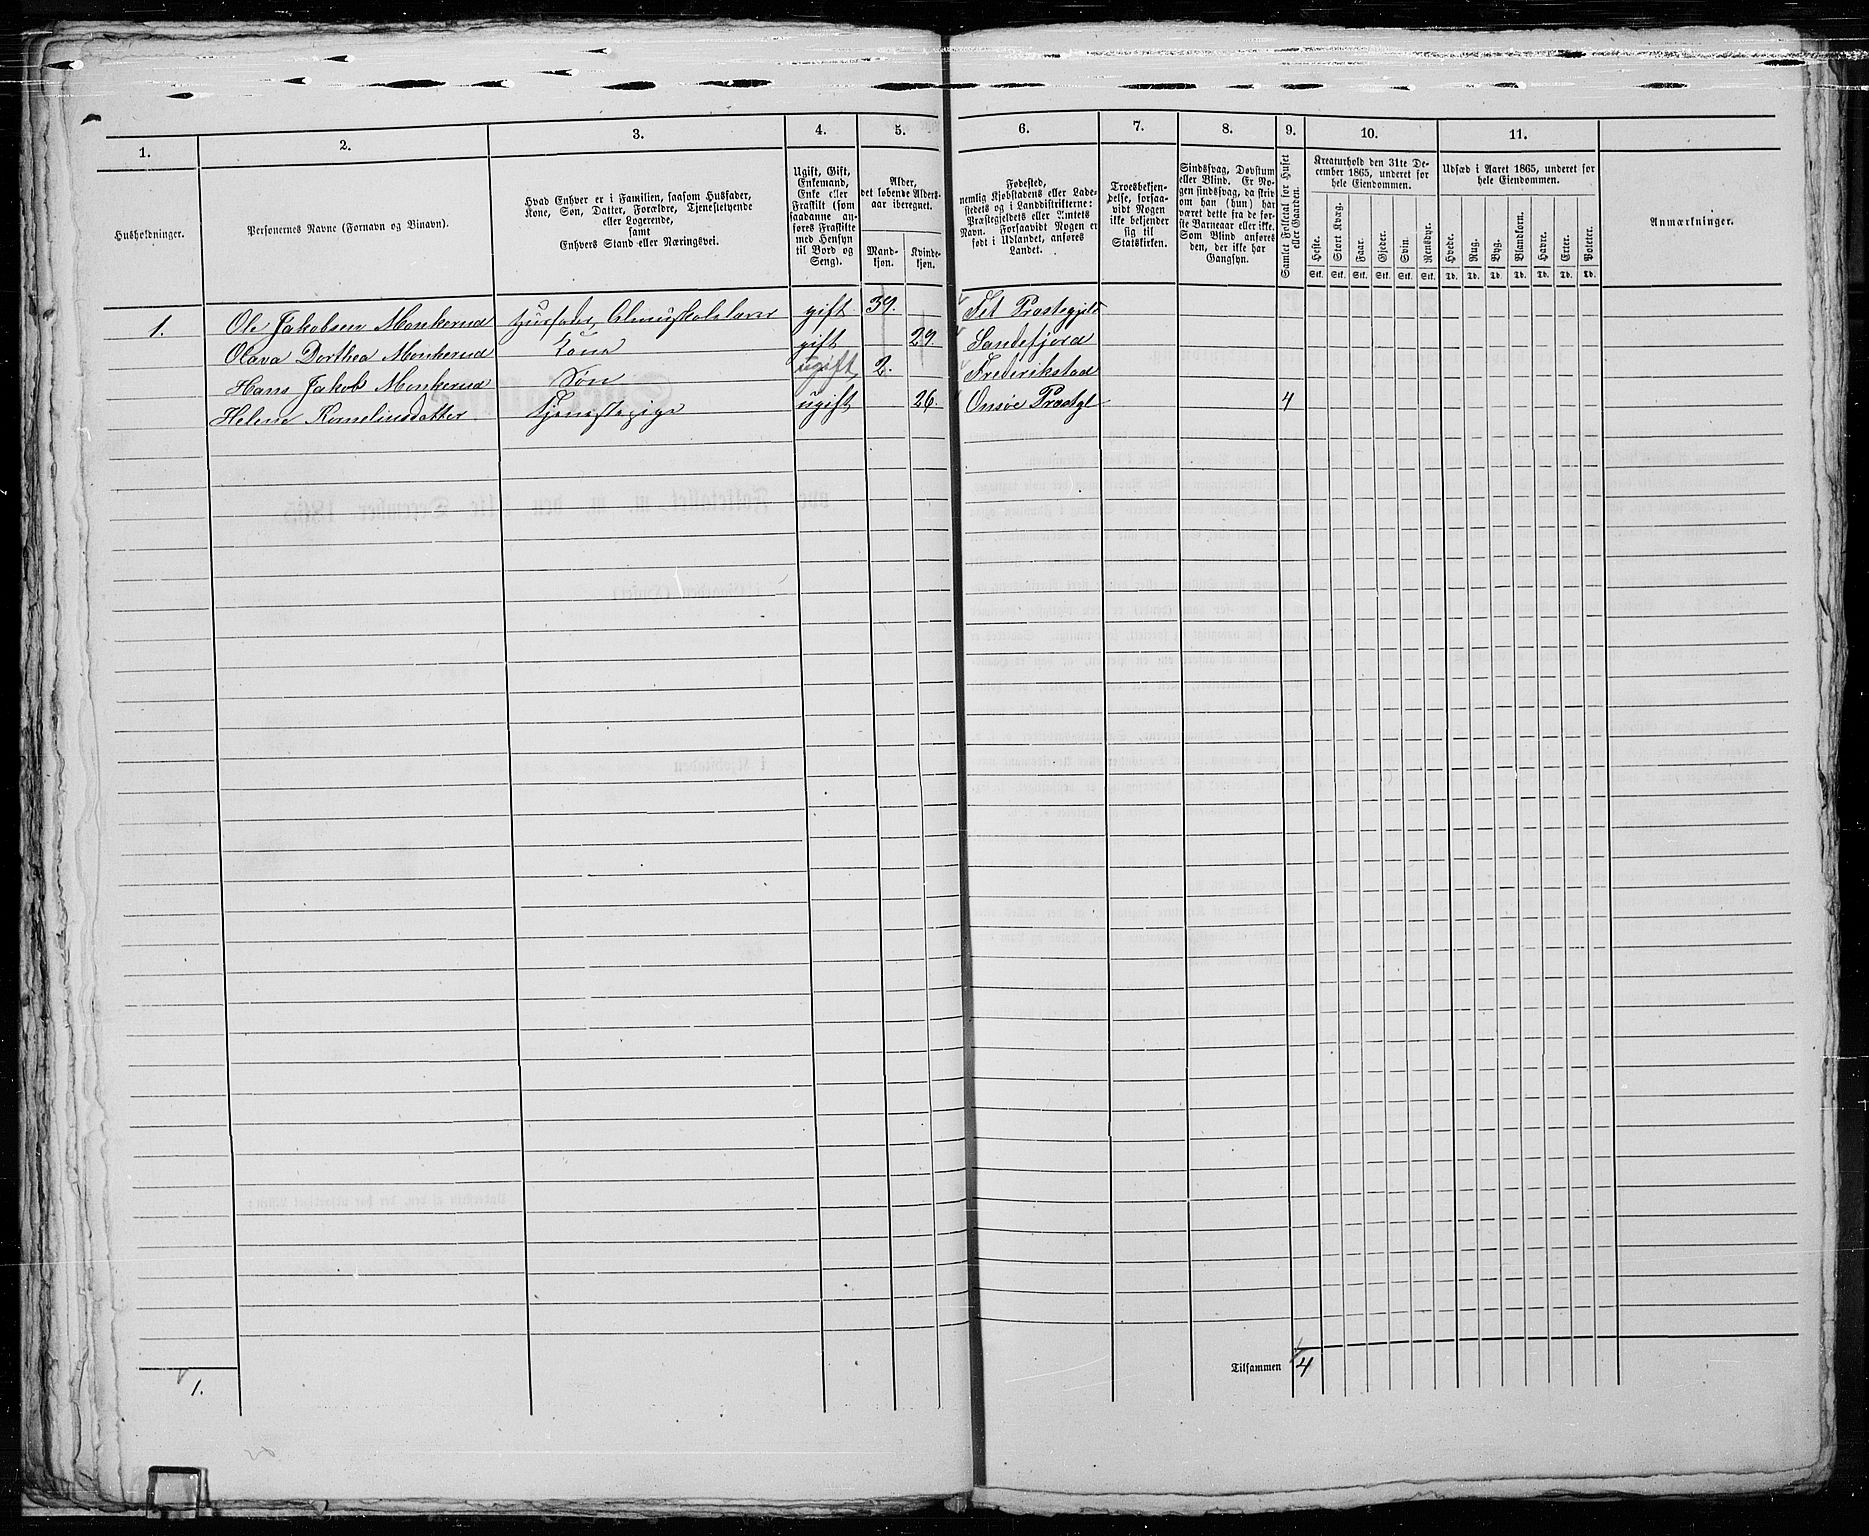 1. 2. 3. 4. 5. 6. 7. 8. 9. 10. 11.
Husholdninger.
Personernes Navne (Fornavn og Binavn).
Hvad Enhver er i Familien, saasom Husfader,
Kone, Søn, Datter, Forældre, Tjenestetyende
eller Logerende,
samt
Enhvers Stand eller Næringsvei.
Ugift, Gift,
Enkemand,
Enke eller
Fraskilt (som
saadanne an-
føres Fraskilte
med Hensyn
til Bord og
Seng).
Alder,
det løbende Alders-
aar iberegnet.
Mand-
kjøn.
Kvinde-
kjøn.
Fødested,
nemlig Kjøbstadens eller Lade-
stedets og i Landdistrikterne:
Præstegjeldets eller Amtets
Navn. Forsaavidt Nogen er
født i Udlandet, anføres
Landet.
Troesbekjen-
delse, forsaa-
vidt Nogen
ikke bekjender
sig til
Statskirken.
Sindssvag, Døvstum
eller Blind. Er No-
gen sindssvag, da skriv
om han (hun) har
været dette fra de før-
ste Barneaar eller ikke.
Som Blind anføres
den, der ikke har
Gangsyn.
Samlet Folketal for Huset
eller Gaarden.
Kreaturhold den 31te De-
cember 1865, underet for
hele Eiendommen.
Heste. Stort Kvæg. Faar. Gjeder. Svin. Rensdyr.
Stk. Stk. Stk. Stk. Stk. Stk.
Udsæd i Aaret 1865, underet for
hele Eiendommen.
Hvede. Rug. Byg. Blandkorn. Havre. Erter. Poteter.
Td. Td. Td. Td. Td. Td. Td.
Anmærkninger.
1. Ole Jakobsen Monkerud Husfader, Almuskolelærer gift 39. Fet Præstegjeld
Olava Dorthea Monkerud Kone gift 29. Sandefjord
Hans Jakob Monkerud Søn ugift 2. Frederikstad
Helene Kornelinsdatter Tjenestepige ugift 26. Onsøe Præstgl 4
Tilsammen 4
1.